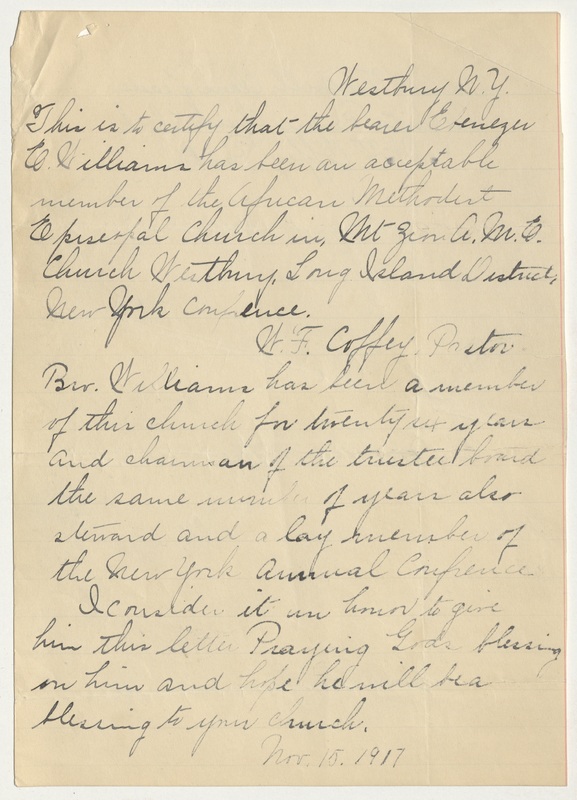 Westbury N.Y.
This is to certify that the bearer Ebenezer
E. Williams has been an acceptable
member of the African Methodist
Episcopal Church in, Mt Zion A. M. E.
Church Westbury, Long Island District,
New York Confrence.
W. F. Coffey, Pastor
Bro. Williams has been a member
of this church for twenty six years
and chairman of the trustee board
the same number of years also
steward and a lay member of
the New York Annual Confrence
I consider it an honor to give
him this letter Praying Gods blessing
on him and hope he will be a
blessing to your church.
Nov. 15. 1917